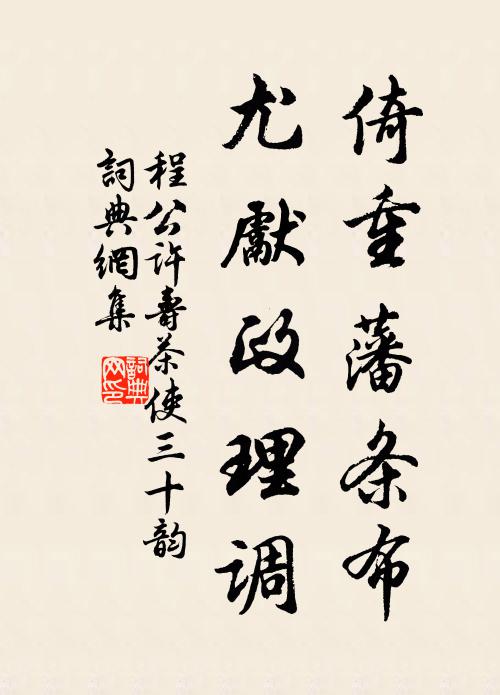 倚重藩条布
尤献政理调
程公許壽茶使三十韵
詞典網集
詞典網印